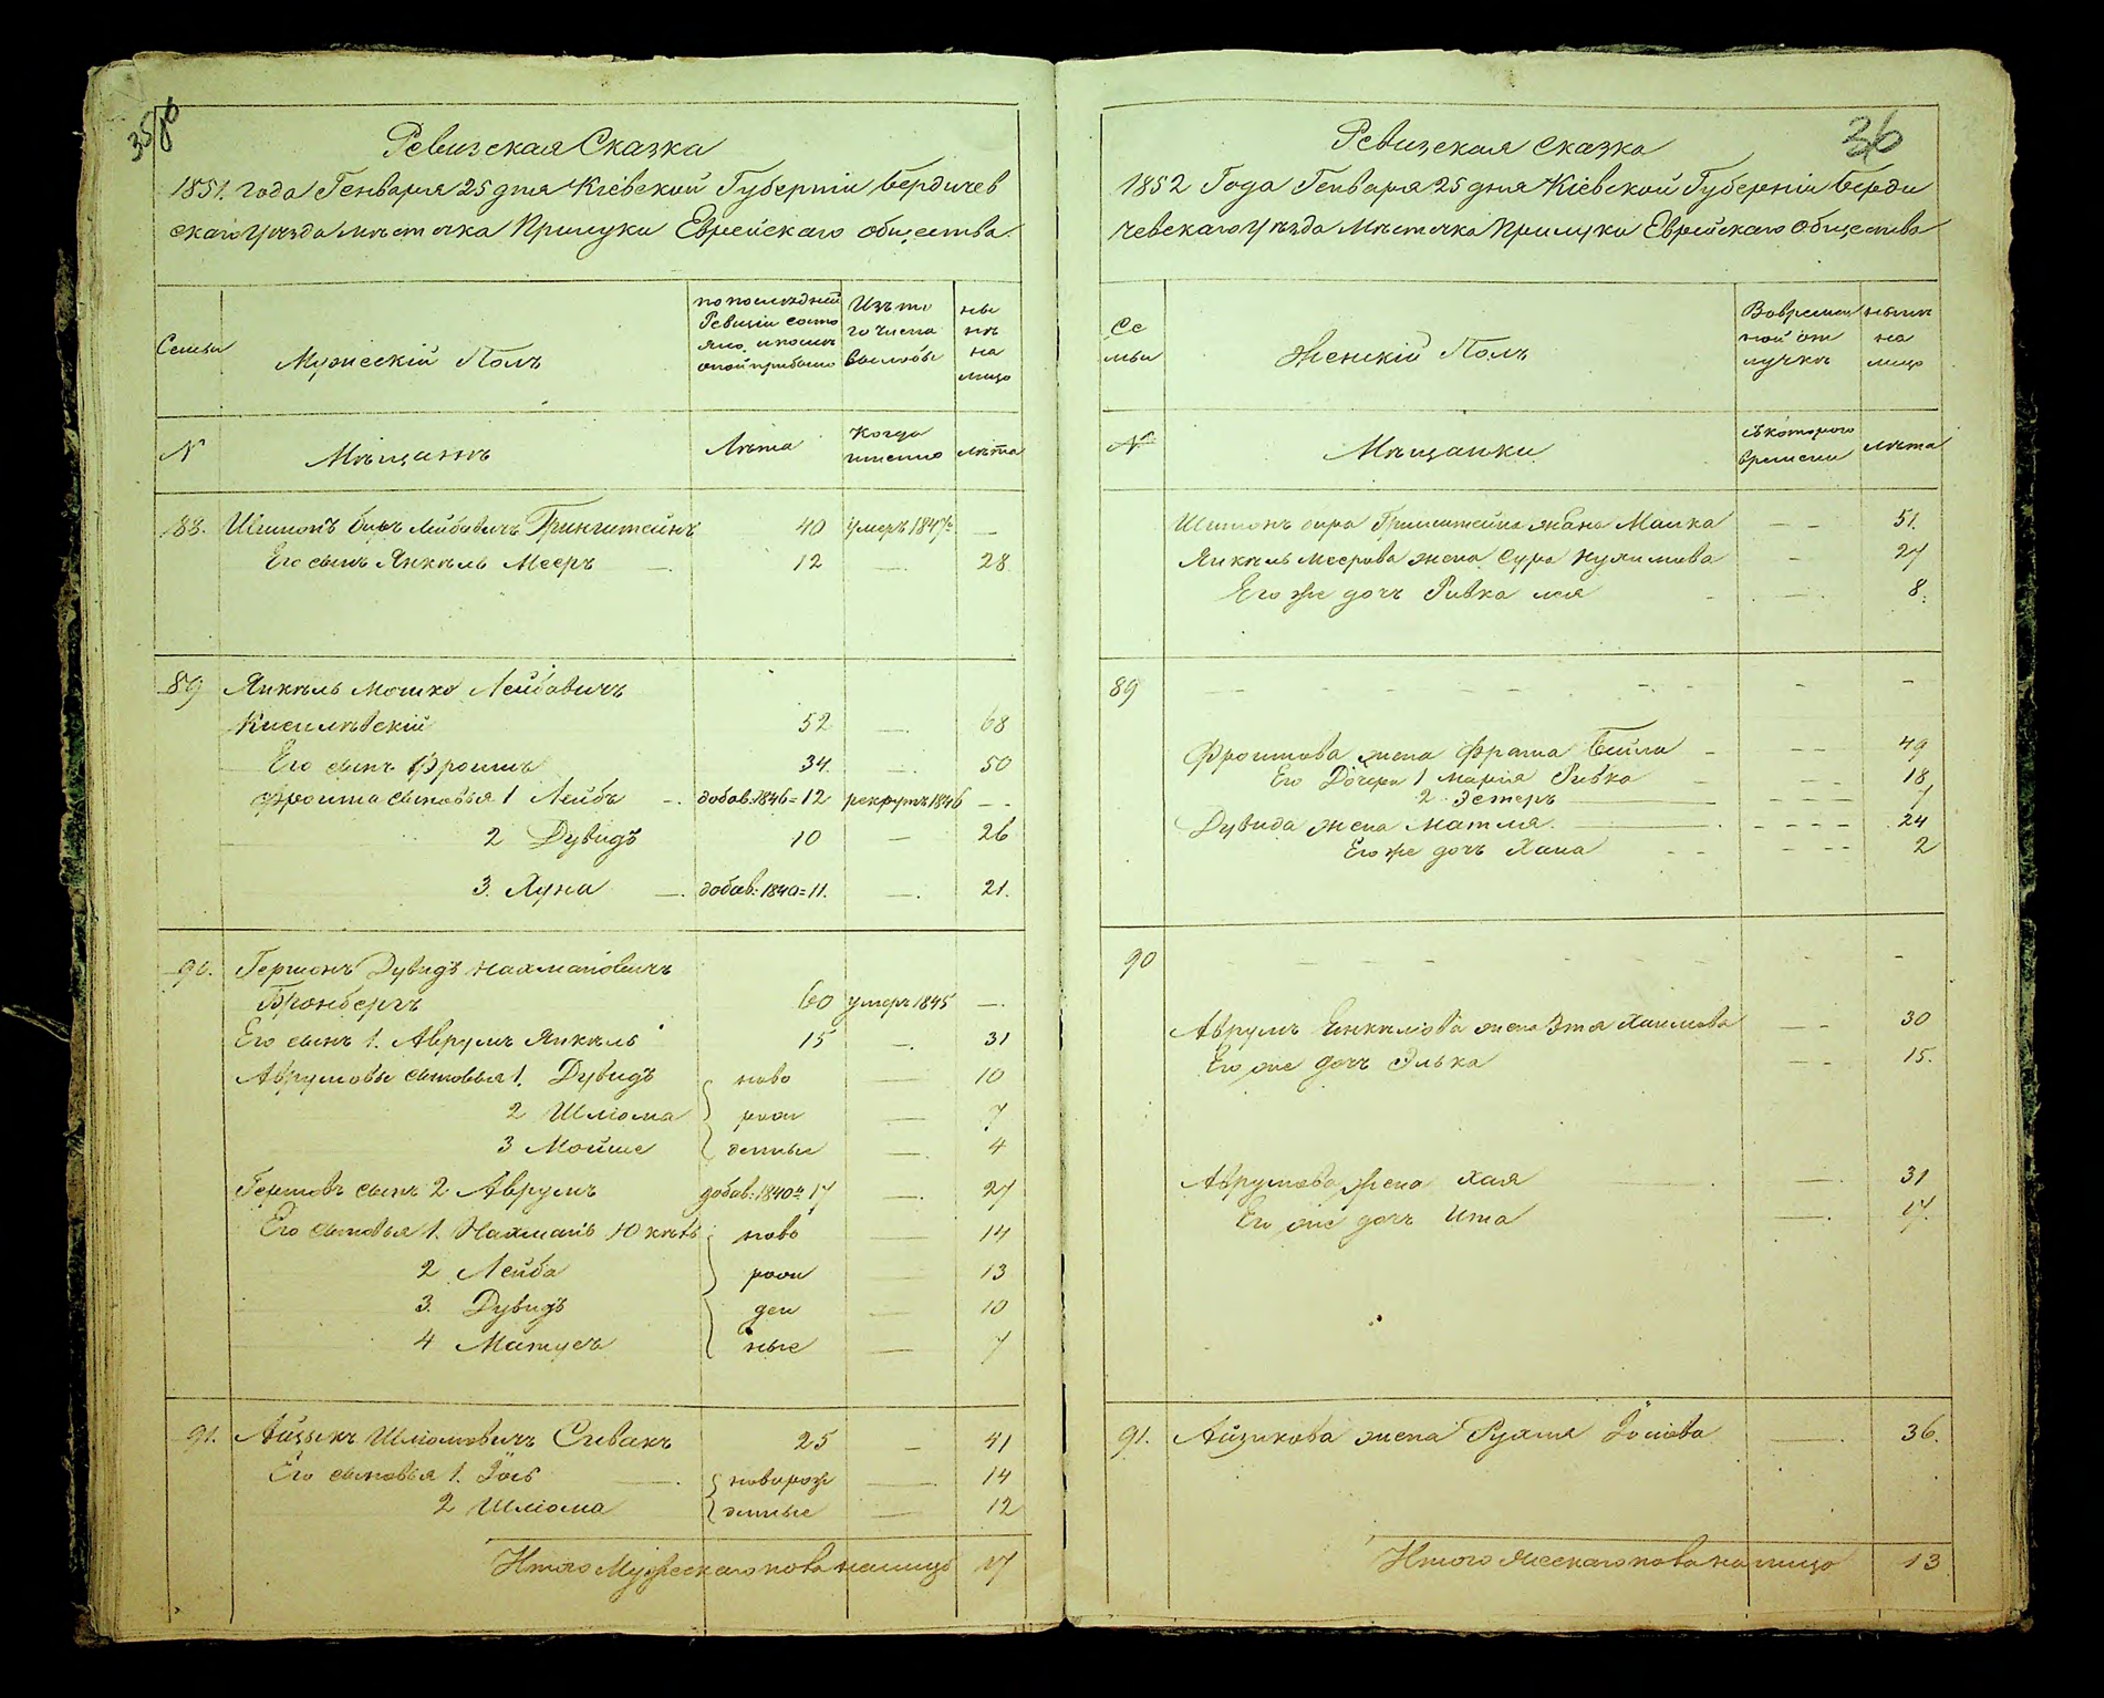 35об
Ревизская Сказка
1851. года Генваря 25 дня Кіевской Губерніи Бердичев
скаго Уезда мѣстечка Прилуки Еврейскаго общества
Семьи
Мужескій Полъ
по последней
Ревизіи состо
яло и после
оной прибыло
Изъ то
го числа
выбыло
ны
нѣ
на
лицо
N
Мѣщанѣ
Лѣта
Когда
именно
лѣта
188. Шимонъ Беръ Лейбовичъ Гринштейнъ 40 умеръ 1847 —
Его сынъ Янкель Мееръ — 12 — 28
89 Янкель Мошко Лейбовичъ
Киселѣвскій 52 — 68
Его сынъ Фроимъ 34. — 50
Фроима сыновья 1 Лейбъ — добав: 1846 = 12 рекрутъ 1846 — -
2 Дувидъ 10 — 26
3. Хуна — добав: 1840 = 11. — 21.
90. Гершонъ Дувидъ Нахмановичъ
Бронбергъ 60 умеръ 1845 —.
Его сынъ 1. Аврумъ Янкель 15 —. 31
Аврумовы сыновья 1. Дувидъ ново — 10
2 Шліома рож — 7
3 Мойше денные —. 4
Гершовъ сынъ 2 Аврумъ добав: 1840 = 17 —. 27
Его сыновья 1. Нахманъ ново — 14
2 Лейба рож — 13
3. Дувидъ ден — 10
4 Матусъ ные — 7
91. Айзикъ Шліомовичъ Сивакъ 25 — 41
Его сыновья 1. Іось —. новорож —. 14
2 Шліома денные — 12
Итого Мужескаго пола налицо 17
36
Ревизская сказка
1852 Года Генваря 25 дня Кіевской Губерніи Берди
чевскаго Уѣзда Мѣстечка Прилуки Еврейскаго Общества
Се
мьи
Женскій Полъ
Вовремен
ной от
лучкѣ
нынѣ
на
лицо
N
Мѣщанки
съ котораго
времени
лѣта
Шимонъ Гринштейна жена Малка — - 51.
Янкель Меерова жена Сура — 27
Его же дочъ Ривка Лея - — 8.
89
Фроимова жена Фрама Бейла - - - 49
Его Дочери 1 Мария Ривка - - - 18
2. Эстеръ - - - - 7
Дувида жена Матля. - - - - 24
Его же дочъ Хана - - - - - 2
90
Аврумъ Енкелова жена Этя Хаимова — - 30
Его же дочъ Элька — - 15.
Аврумова жена Хая —. 31
Его же дочъ Ита —. 17.
91. Айзикова жена Рухля Іосіова —. 36.
Итого женскаго пола налицо 13